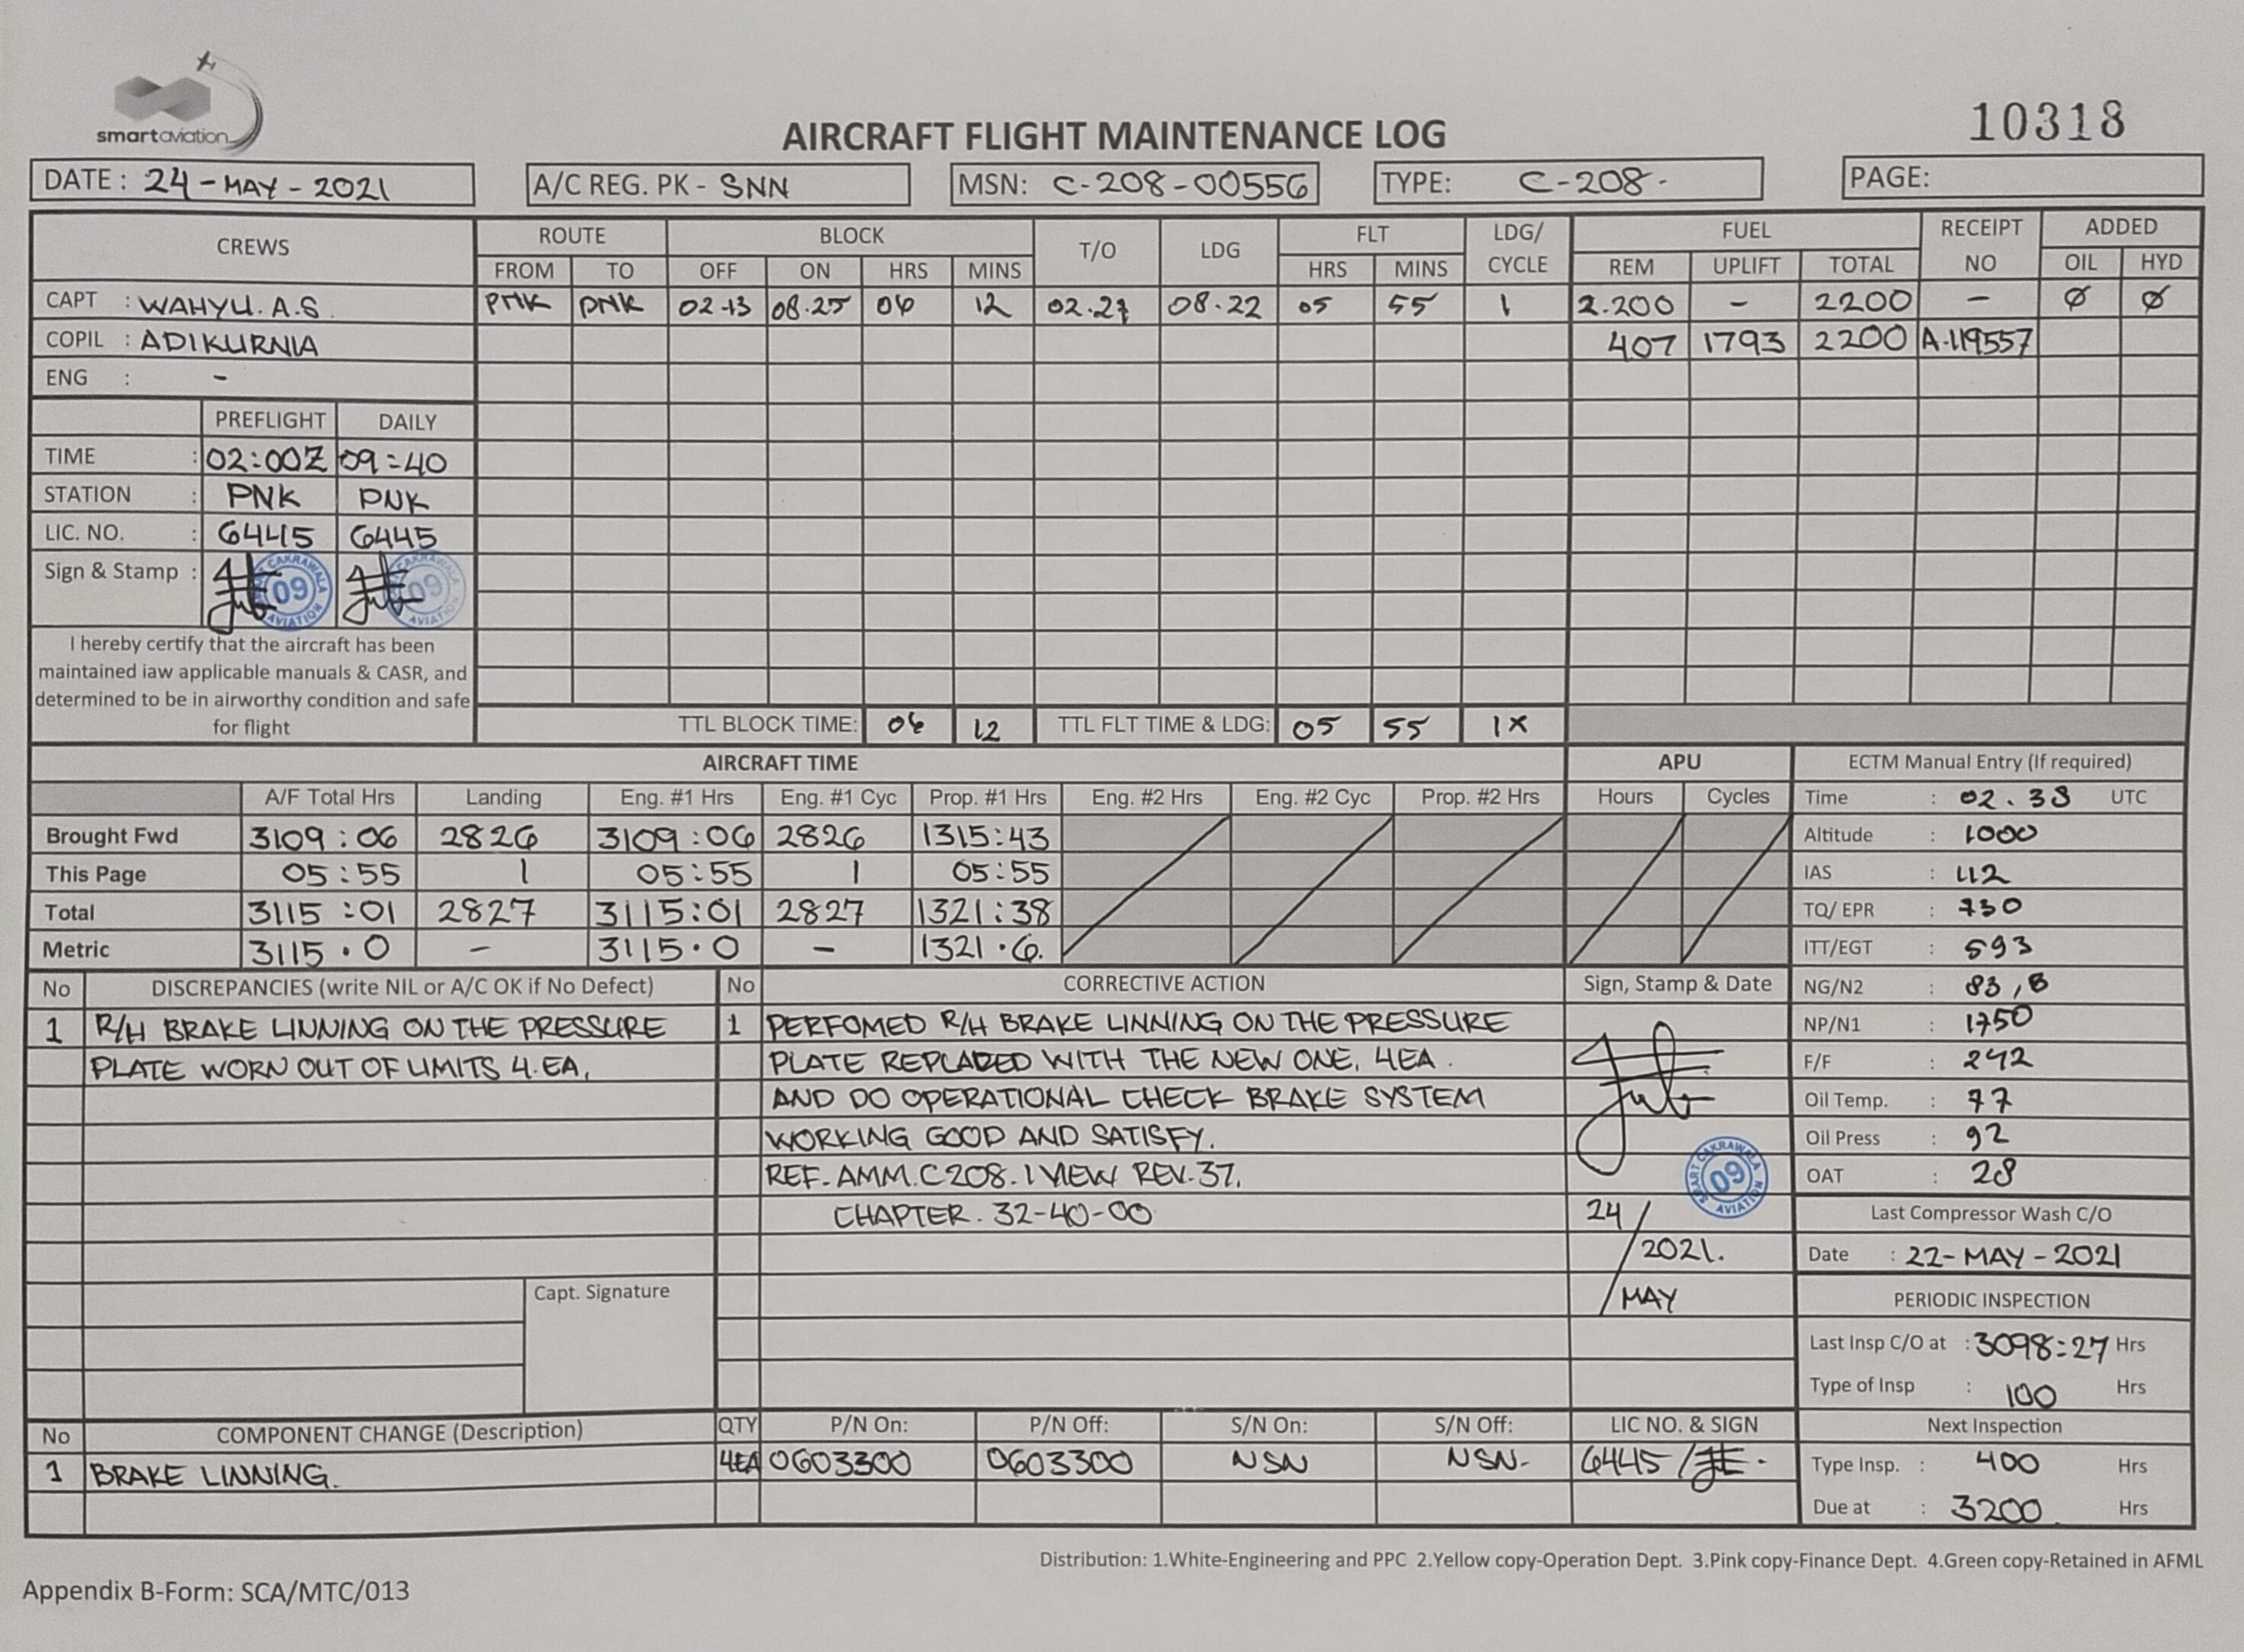 smartaviation
AIRCRAFT FLIGHT MAINTENANCE LOG
10318
DATE : 24-MAY-2021
A/C REG. PK - SNN
MSN: C-208-00556
TYPE: C-208-
PAGE:
CREWS ROUTE BLOCK T/O LDG FLT LDG/ CYCLE FUEL RECEIPT NO ADDED
FROM TO OFF ON HRS MINS HRS MINS REM UPLIFT TOTAL OIL HYD
CAPT : WAHYU. A.S. PNK PNK 02-13 08.25 06 12 02.27 08.22 05 55 1 2.200 - 2200 - Ø Ø
COPIL : ADIKURNIA 407 1793 2200 A-119557
ENG : -
PREFLIGHT DAILY
TIME : 02:00Z 09:40
STATION : PNK PNK
LIC. NO. : 6445 6445
Sign & Stamp :
CAKRAWALA 09 AVIATION
CAKRAWALA 09 AVIATION
I hereby certify that the aircraft has been
maintained iaw applicable manuals & CASR, and
determined to be in airworthy condition and safe
for flight
TTL BLOCK TIME: 06 12 TTL FLT TIME & LDG: 05 55 1X
AIRCRAFT TIME APU
A/F Total Hrs Landing Eng. #1 Hrs Eng. #1 Cyc Prop. #1 Hrs Eng. #2 Hrs Eng. #2 Cyc Prop. #2 Hrs Hours Cycles
Brought Fwd 3109:06 2826 3109:06 2826 1315:43
This Page 05:55 1 05:55 1 05:55
Total 3115:01 2827 3115:01 2827 1321:38
Metric 3115.0 - 3115.0 - 1321.6.
ECTM Manual Entry (If required)
Time : 02.38 UTC
Altitude : 1000
IAS : 112
TQ/ EPR : 730
ITT/EGT : 593
NG/N2 : 83,8
NP/N1 : 1750
F/F : 242
Oil Temp. : 77
Oil Press : 92
OAT : 28
Last Compressor Wash C/O
Date : 22-MAY-2021
PERIODIC INSPECTION
Last Insp C/O at : 3098:27 Hrs
Type of Insp : 100 Hrs
Next Inspection
Type Insp. : 400 Hrs
Due at : 3200 Hrs
No DISCREPANCIES (write NIL or A/C OK if No Defect)
1 R/H BRAKE LINNING ON THE PRESSURE
PLATE WORN OUT OF LIMITS 4.EA,
Capt. Signature
No CORRECTIVE ACTION Sign, Stamp & Date
1 PERFOMED R/H BRAKE LINNING ON THE PRESSURE
PLATE REPLACED WITH THE NEW ONE, 4EA.
AND DO OPERATIONAL CHECK BRAKE SYSTEM
WORKING GOOD AND SATISFY.
REF-AMM.C208.1VIEW REV.37.
CHAPTER. 32-40-00
SMART CAKRAWALA 09 AVIATION
24/
/2021.
/MAY
No COMPONENT CHANGE (Description) QTY P/N On: P/N Off: S/N On: S/N Off: LIC NO. & SIGN
1 BRAKE LINNING. 4EA 0603300 0603300 NSN NSN- 6445/
Distribution: 1.White-Engineering and PPC 2.Yellow copy-Operation Dept. 3.Pink copy-Finance Dept. 4.Green copy-Retained in AFML
Appendix B-Form: SCA/MTC/013